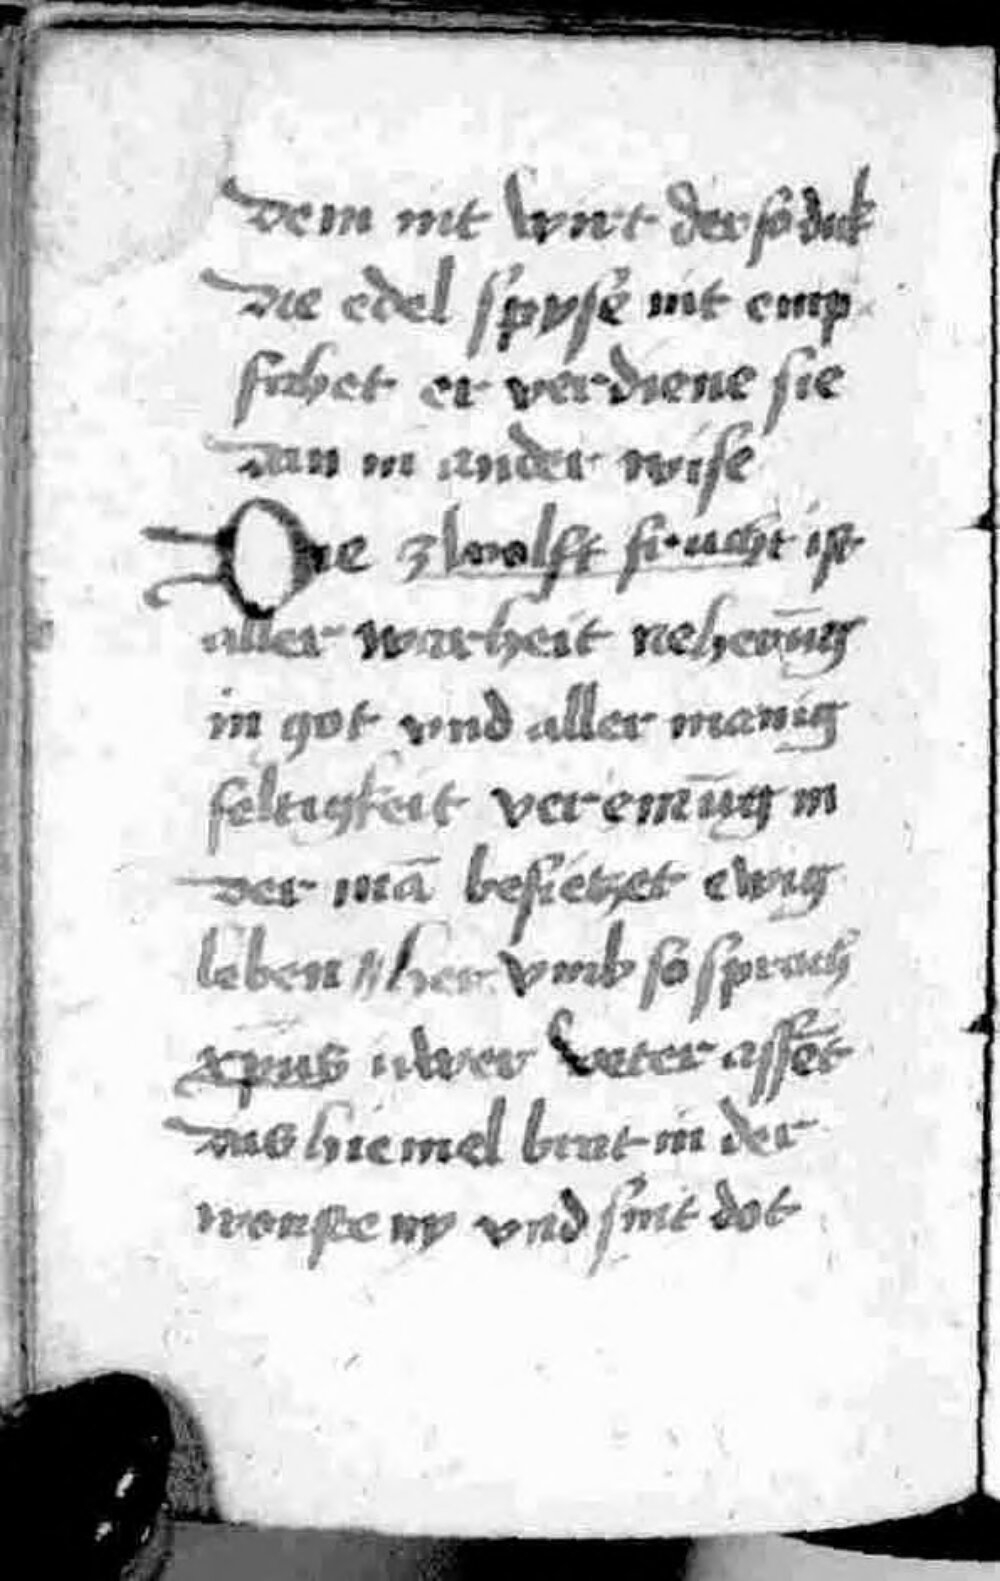 dem nit wirt der so dick
die edel spyse nit emp
fahet er verdiene sie
dan in ander wise
Die zwolfft frucht ist
aller warheit neherūg
in got vnd aller manig
feltigkeit vereinūg in
der mā besietzet ewig
leben her vmb so sprach
xp̄us uwer veter assēt
das hiemel brot in der
wonsteny vnd sint dot